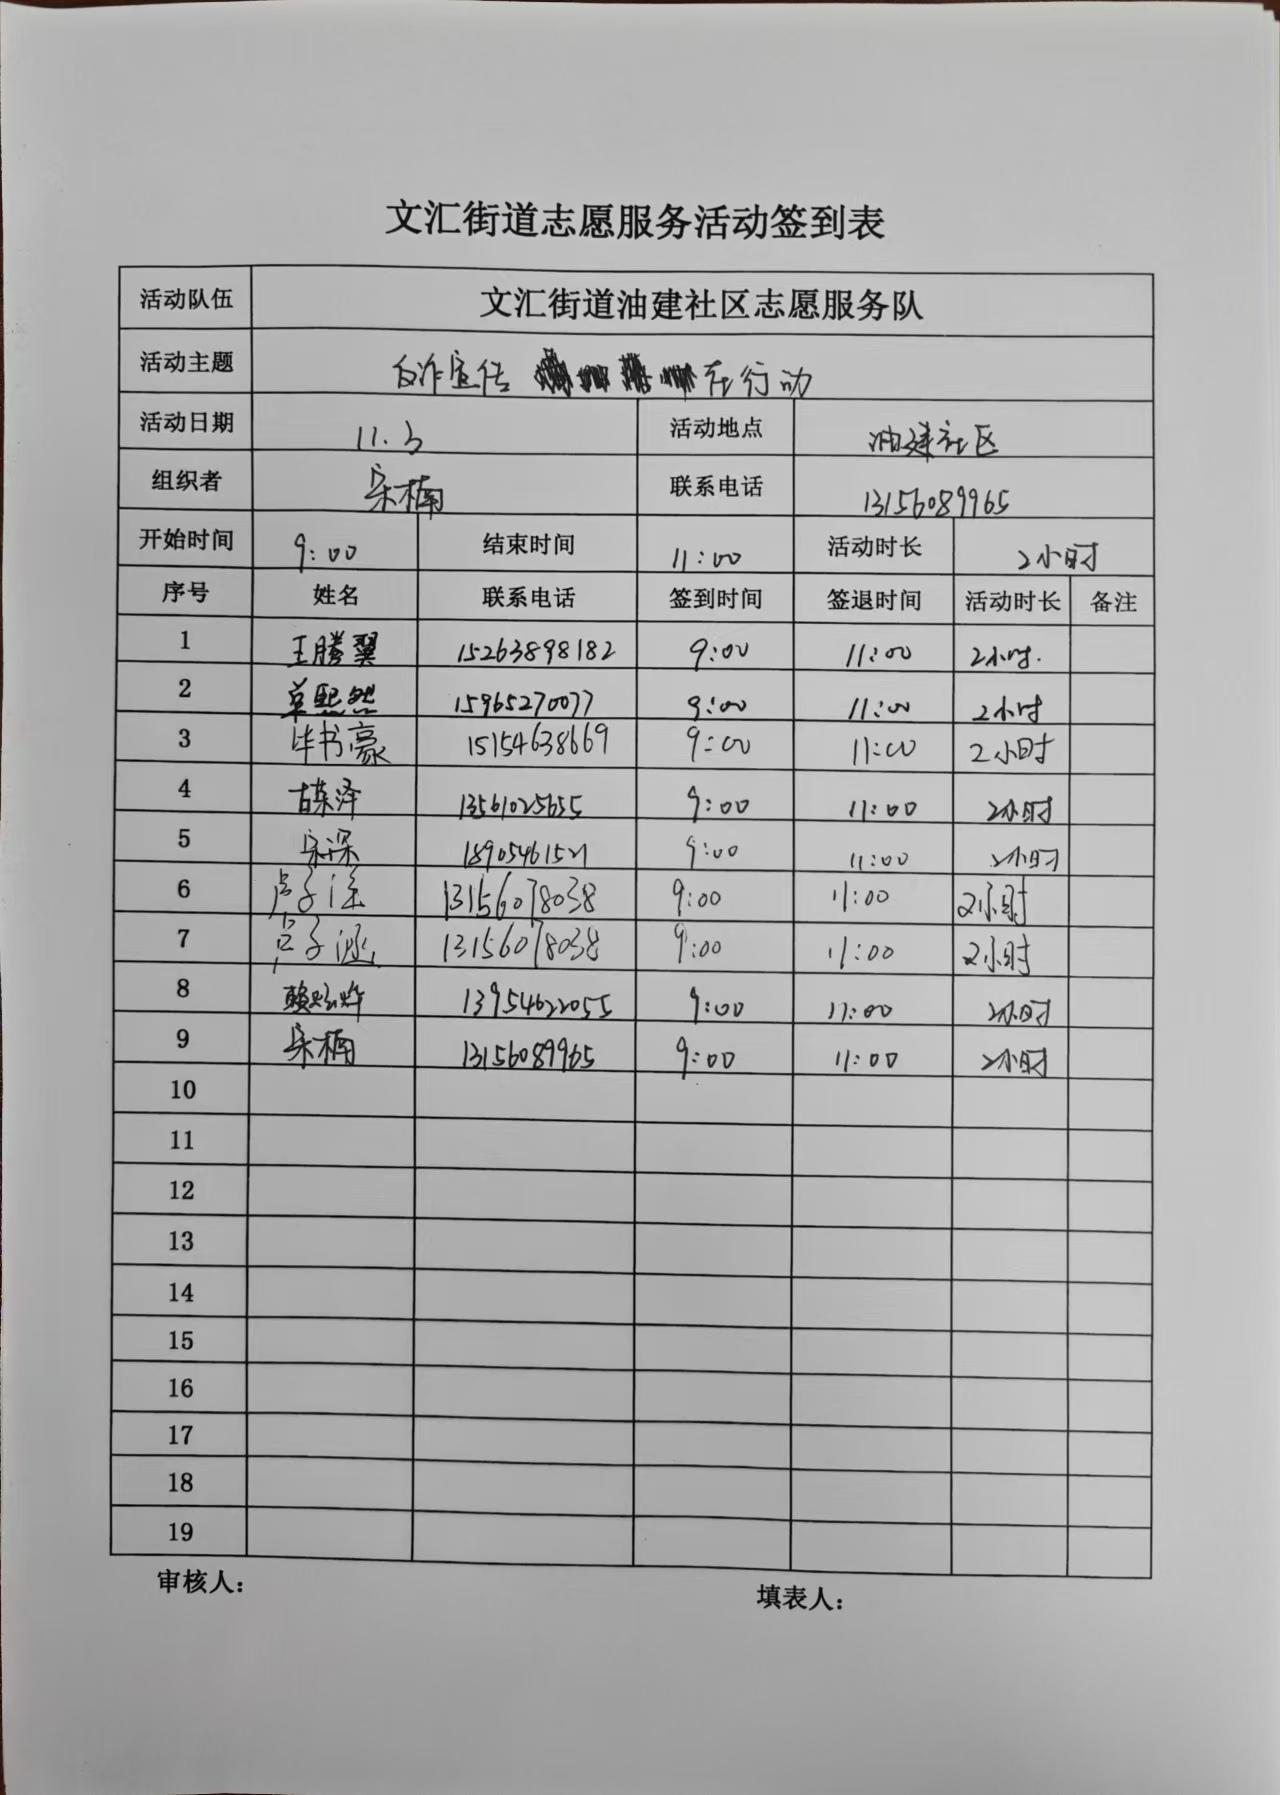 文汇街道志愿服务活动签到表
活动队伍 文汇街道油建社区志愿服务队
活动主题 反诈宣传 在行动
活动日期 11.3 活动地点 油建社区
组织者 宋楠 联系电话 13156089965
开始时间 9:00 结束时间 11:00 活动时长 2小时
序号 姓名 联系电话 签到时间 签退时间 活动时长 备注
1 王腾翼 15263898182 9:00 11:00 2小时.
2 覃熙然 15965270077 9:00 11:00 2小时
3 毕书豪 15154638669 9:00 11:00 2小时
4 古栋泽 13561025655 9:00 11:00 2小时
5 宋深 18905461521 9:00 11:00 2小时
6 卢子涂 13156078038 9:00 11:00 2小时
7 子涵 13156078038 9:00 11:00 2小时
8 赖 烨 13954622055 9:00 11:00 2小时
9 宋楠 13156089965 9:00 11:00 2小时
10
11
12
13
14
15
16
17
18
19
审核人： 填表人：